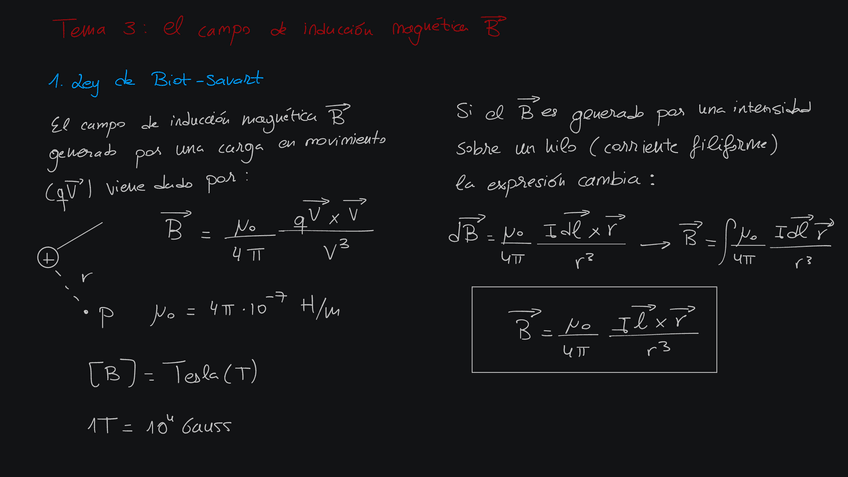 Tema 3: el campo de inducción magnética $\vec{B}$
1. Ley de Biot-Savart
El campo de inducción magnética $\vec{B}$
generado por una carga en movimiento
($q\vec{V}$) viene dado por:
$\vec{B} = \frac{\mu_0}{4\pi} \frac{q\vec{V} \times \vec{V}}{V^3}$
+
r
P
$\mu_0 = 4\pi \cdot 10^{-7}$ H/m
[B] = Tesla (T)
1T = $10^4$ Gauss
Si el $\vec{B}$ es generado por una intensidad
sobre un hilo (corriente filiforme)
la expresión cambia:
$d\vec{B} = \frac{\mu_0}{4\pi} \frac{I d\vec{l} \times \vec{r}}{r^3} \rightarrow \vec{B} = \int \frac{\mu_0}{4\pi} \frac{I d\vec{l} \, \vec{r}}{r^3}$
$\vec{B} = \frac{\mu_0}{4\pi} \frac{I \vec{l} \times \vec{r}}{r^3}$